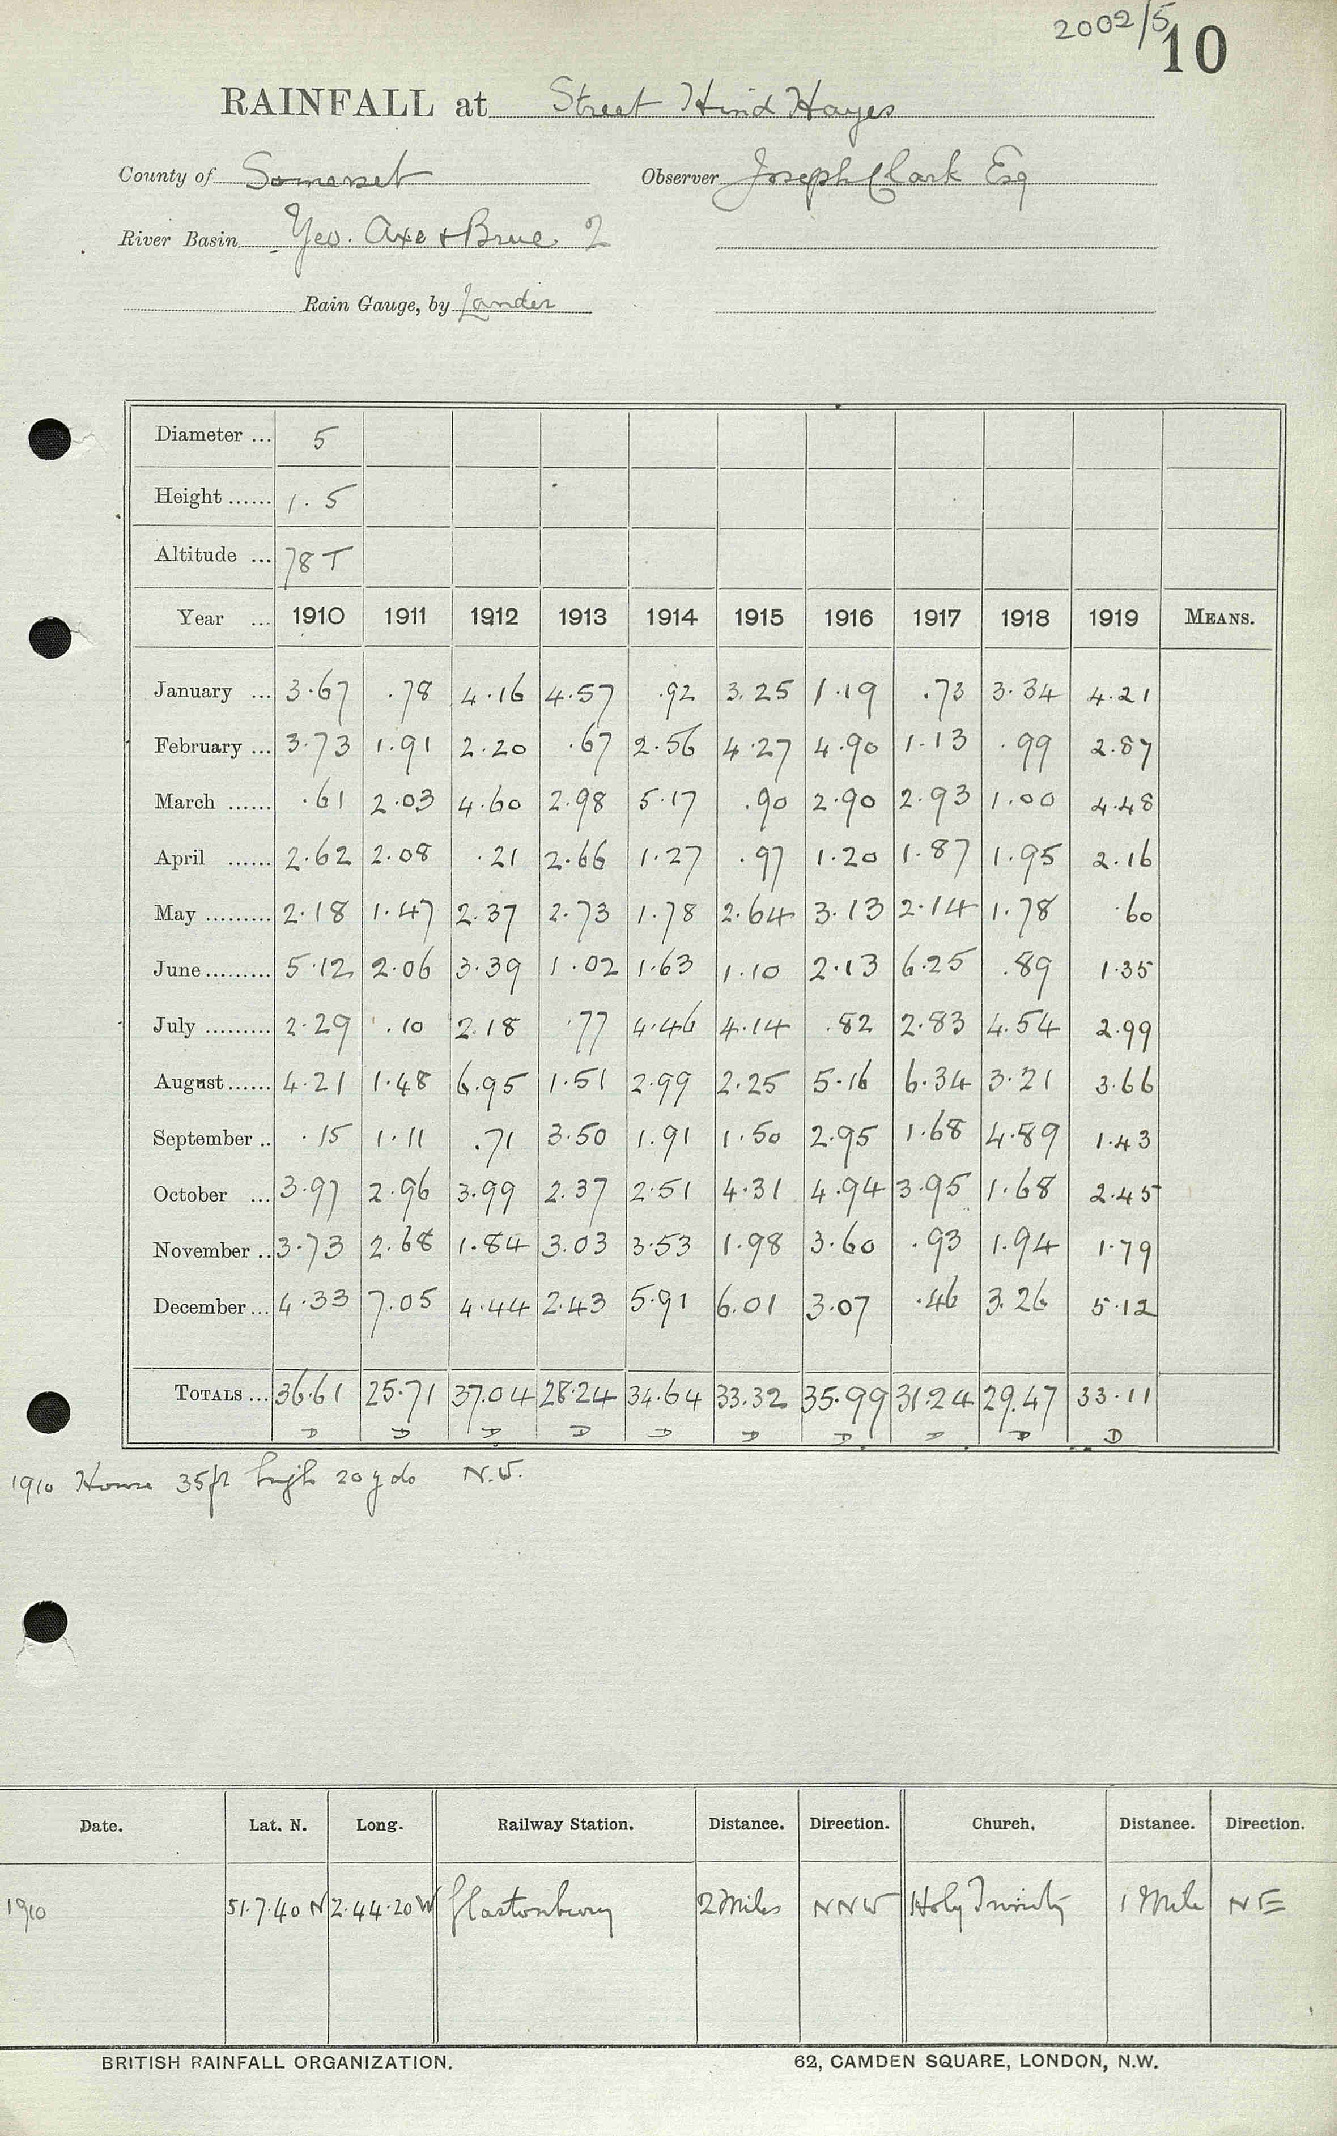 2002/5
10
RAINFALL at Street Hind Hayes
County of Somerset Observer Joseph Clark Esq
River Basin Yeo. Axe & Brue. 2
Rain Gauge, by Lander
Diameter ... 5
Height ...... 1.5
Altitude ... 78 T
Year ... 1910 1911 1912 1913 1914 1915 1916 1917 1918 1919 MEANS.
January ... 3.67 .78 4.16 4.57 .92 3.25 1.19 .73 3.34 4.21
February ... 3.73 1.91 2.20 .67 2.56 4.27 4.90 1.13 .99 2.87
March ...... .61 2.03 4.60 2.98 5.17 .90 2.90 2.93 1.00 4.48
April ...... 2.62 2.08 .21 2.66 1.27 .97 1.20 1.87 1.95 2.16
May ......... 2.18 1.47 2.37 2.73 1.78 2.64 3.13 2.14 1.78 .60
June ......... 5.12 2.06 3.39 1.02 1.63 1.10 2.13 6.25 .89 1.35
July ......... 2.29 .10 2.18 .77 4.46 4.14 .82 2.83 4.54 2.99
August ...... 4.21 1.48 6.95 1.51 2.99 2.25 5.16 6.34 3.21 3.66
September .. .15 1.11 .71 3.50 1.91 1.50 2.95 1.68 4.89 1.43
October ... 3.97 2.96 3.99 2.37 2.51 4.31 4.94 3.95 1.68 2.45
November .. 3.73 2.68 1.84 3.03 3.53 1.98 3.60 .93 1.94 1.79
December ... 4.33 7.05 4.44 2.43 5.91 6.01 3.07 .46 3.26 5.12
TOTALS ... 36.61 25.71 37.04 28.24 34.64 33.32 35.99 31.24 29.47 33.11
D D D D D D D D D D
1910 House 35ft high 20 yds N.W.
Date. Lat. N. Long. Railway Station. Distance. Direction. Church. Distance. Direction.
1910 51.7.40 N 2.44.20 W Glastonbury 2 Miles NNW Holy Trinity 1 Mile NE
BRITISH RAINFALL ORGANIZATION. 62, CAMDEN SQUARE, LONDON, N.W.